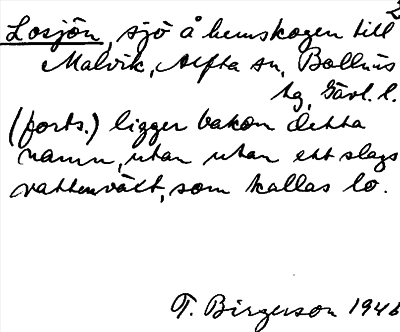 2
Losjön, sjö å hemskogen till
Malvik, Alfta sn, Bollnäs
tg, Gävl. l.
(forts.) ligger bakom detta
namn, utan utan ett slags
vattenväxt, som kallas lo.
T. Birgerson 1946